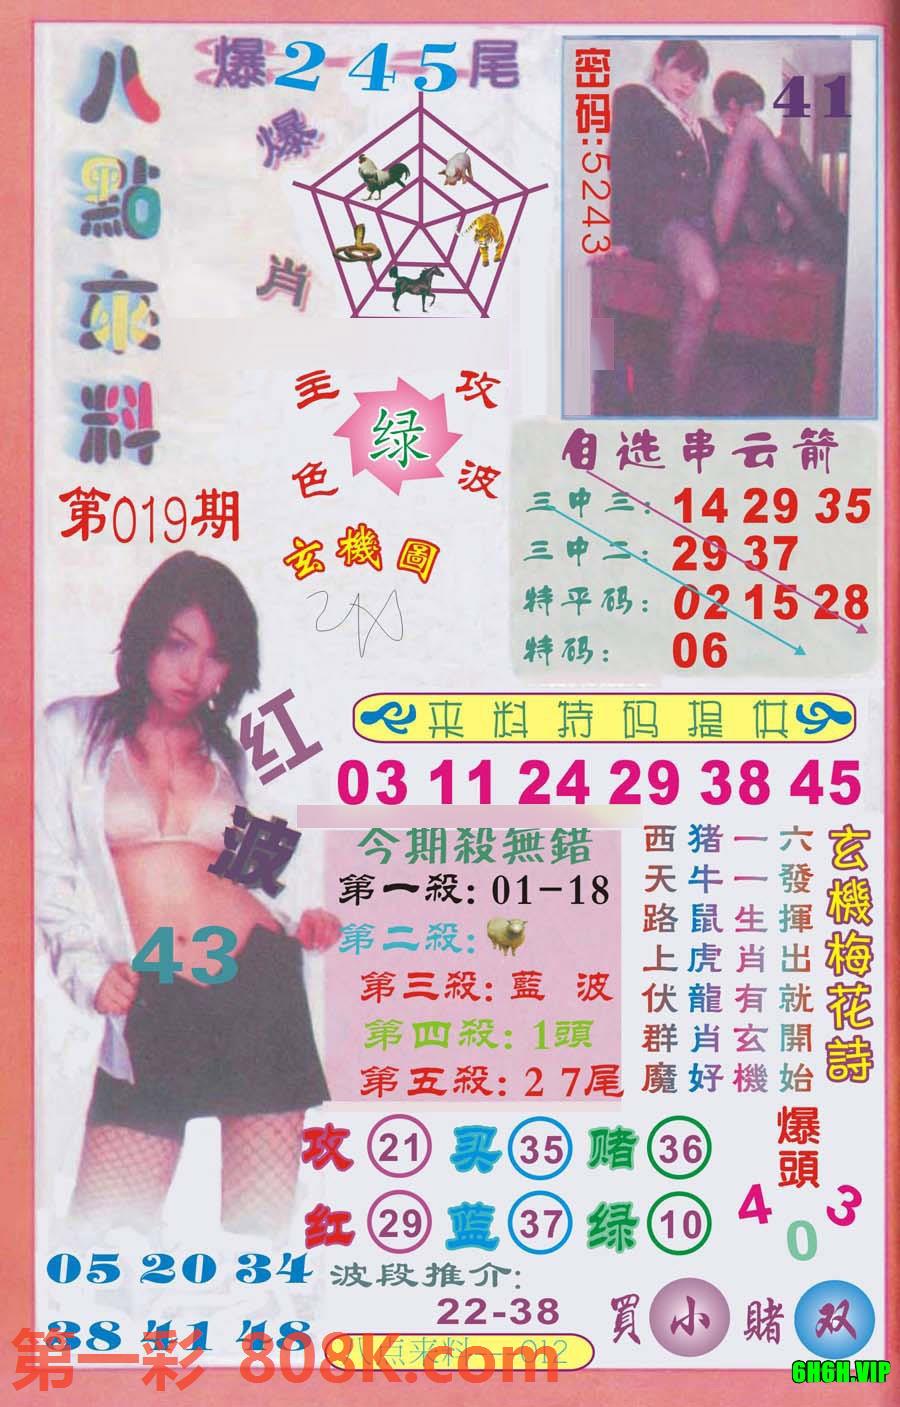 八點來料
爆245尾
爆肖
密码:5243
41
主色
绿
攻波
第019期
玄機圖
自选串云箭
三中三: 14 29 35
三中二: 29 37
特平码: 02 15 28
特码: 06
红波
43
来料特码提供
03 11 24 29 38 45
今期殺無錯
第一殺: 01-18
第二殺:
第三殺: 藍 波
第四殺: 1頭
第五殺: 2 7尾
玄機梅花詩
六發揮出就開始
一一生肖有玄機
猪牛鼠虎龍肖好
西天路上伏群魔
攻 21 买 35 赌 36
红 29 蓝 37 绿 10
爆頭
4 0 3
05 20 34
38 41 48
波段推介:
22-38
買 小 賭 双
八点来料 — 012
第一彩 808K.com
6H6H.VIP